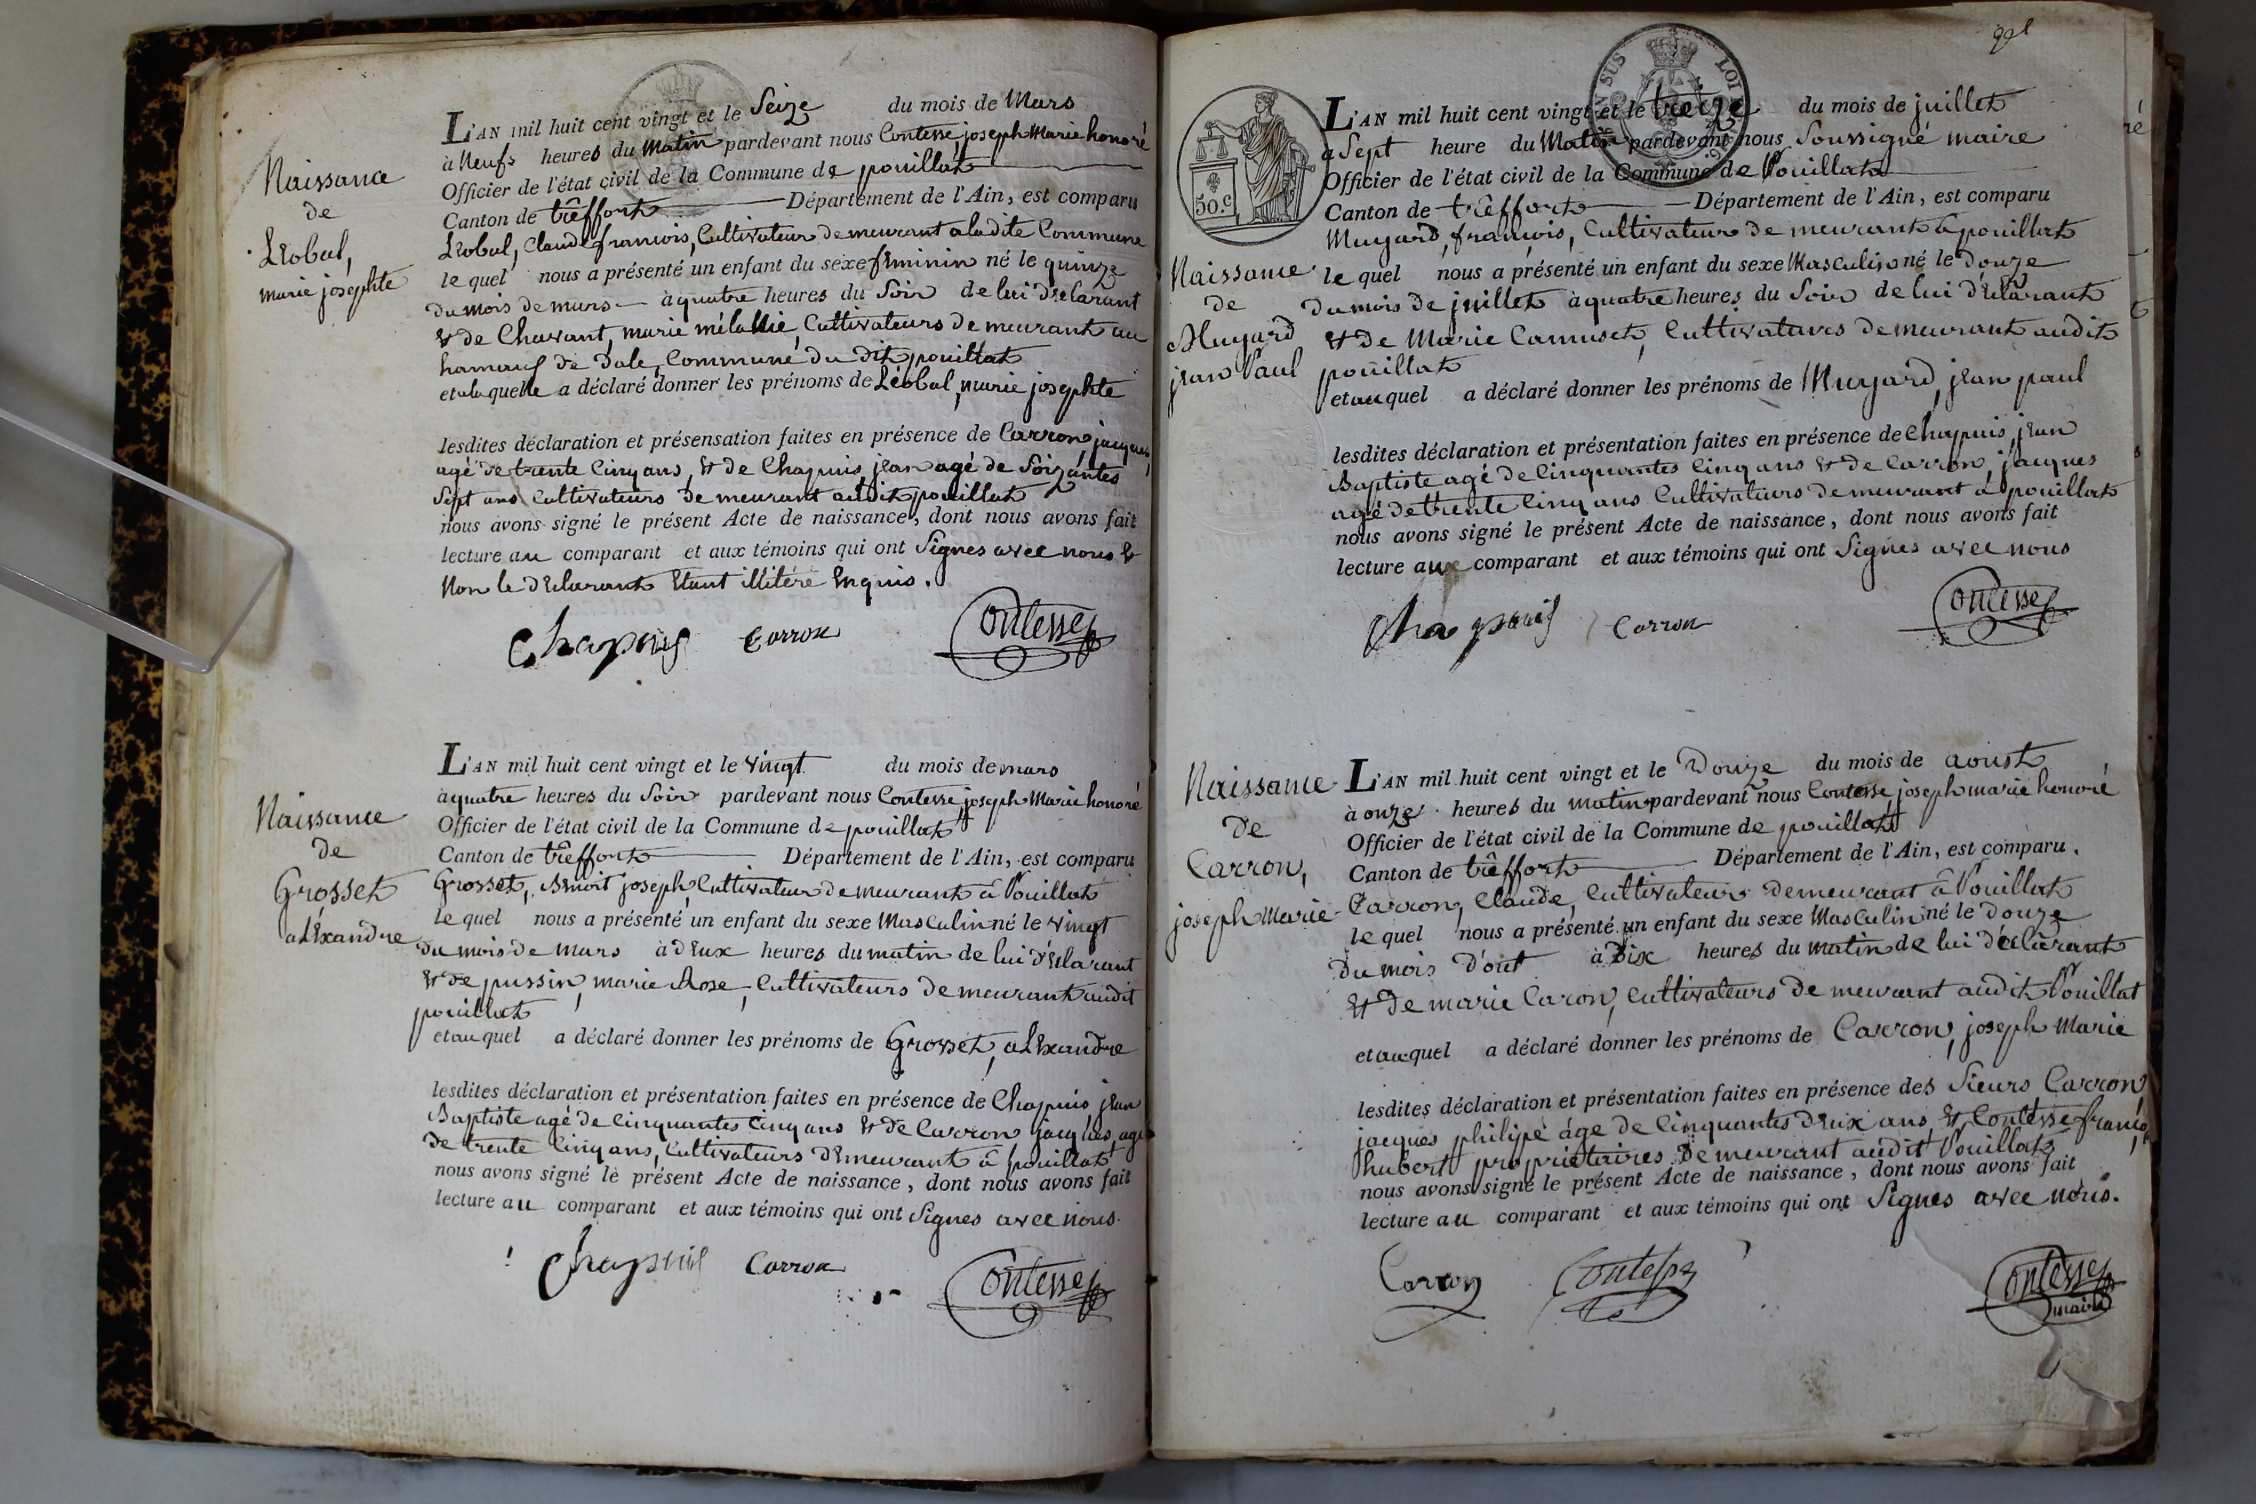 L'AN mil huit cent vingt et le Seize du mois de Mars
à Neufs heures du Matin pardevant nous Contesse, joseph Marie honoré
Officier de l'état civil de la Commune de pouillat
Canton de trêffort Département de l'Ain, est comparu
Léobal, Claude françois, Cultivateur demeurant a ladite Commune
le quel nous a présenté un enfant du sexe feminin né le quinze
du mois de mars à quatre heures du Soir de lui déclarant
et de Chavant, marie mélanie, Cultivateurs demeurant au
hamauf de dale, Commune du dit pouillat
et a la quelle a déclaré donner les prénoms de Léobal, marie josephte
lesdites déclaration et présensation faites en présence de Carron, jacques,
agé de trente Cinq ans, et de Chapuis, jean agé de Soizantes
Sept ans Cultivateurs demeurant audit pouillat
nous avons signé le présent Acte de naissance, dont nous avons fait
lecture au comparant et aux témoins qui ont Signés avec nous et
Non le déclarant étant illitéré enquis.
Naissance
de
Léobal,
marie josephte
Chapuis Carron Contesse
L'AN mil huit cent vingt et le vingt du mois de mars
à quatre heures du Soir pardevant nous Contesse, joseph Marie honoré
Officier de l'état civil de la Commune de pouillat
Canton de trêffort Département de l'Ain, est comparu
Grosset, Benoit joseph Cultivateur demeurant â Pouillat
le quel nous a présenté un enfant du sexe Masculin né le vingt
du mois de Mars à deux heures du matin de lui déclarant
et de pussin, marie Rose, Cultivateurs demeurant audit
pouillat
et au quel a déclaré donner les prénoms de Grosset, aléxandre
lesdites déclaration et présentation faites en présence de Chapuis, jean
Baptiste agé de Cinquantes Cinq ans et de Carron jacques, agé
de trente Cinq ans, Cultivateurs demeurant â pouillat
nous avons signé le présent Acte de naissance, dont nous avons fait
lecture au comparant et aux témoins qui ont Signés avec nous.
Naissance
de
Grosset
aléxandre
Chapuis Carron Contesse
50.c
L'AN mil huit cent vingt et le treize du mois de juillet
a Sept heure du Matin pardevant nous Soussigné maire
Officier de l'état civil de la Commune de Pouillat
Canton de trêffort Département de l'Ain, est comparu
Muyard, françois, Cultivateur demeurant à pouillat
le quel nous a présenté un enfant du sexe Masculin né le douze
du mois de juillet à quatre heures du Soir de lui déclarant
et de Marie Camuset, Cultivateurs demeurant audit
pouillat
et au quel a déclaré donner les prénoms de Muyard, jean paul
lesdites déclaration et présentation faites en présence de Chapuis, jean
Baptiste agé de Cinquantes Cinq ans et de Carron, jacques
agé de trente Cinq ans Cultivateurs demeurant à pouillat
nous avons signé le présent Acte de naissance, dont nous avons fait
lecture aux comparant et aux témoins qui ont Signés avec nous
Naissance
de
Muyard
jean Paul
Chapuis Carron Contesse
L'AN mil huit cent vingt et le Douze du mois de aoust
à onze heures du matin pardevant nous Contesse, joseph marie honoré
Officier de l'état civil de la Commune de pouillat
Canton de trêffort Département de l'Ain, est comparu
Carron, Claude, Cultivateur demeurant â Pouillat
le quel nous a présenté un enfant du sexe Masculin né le douze
du mois d'out à Dix heures du matin de lui déclarant
et de marie Caron, Cultivateurs demeurant audit Pouillat
et au quel a déclaré donner les prénoms de Carron, joseph Marie
lesdites déclaration et présentation faites en présence des Sieurs Carron,
jacques philipe âge de Cinquantes deux ans et Contesse françois,
hubert propriétaires Demeurant audit Pouillat
nous avons signé le présent Acte de naissance, dont nous avons fait
lecture au comparant et aux témoins qui ont Signés avec nous.
Naissance
de
Carron,
joseph Marie
Carron Contesse Contesse
maire